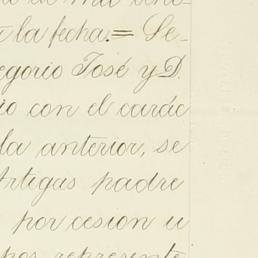 la fecha.= Se-
egorio José y D.
io con el carác
la anterior, se
Artigas padre
por cesion u